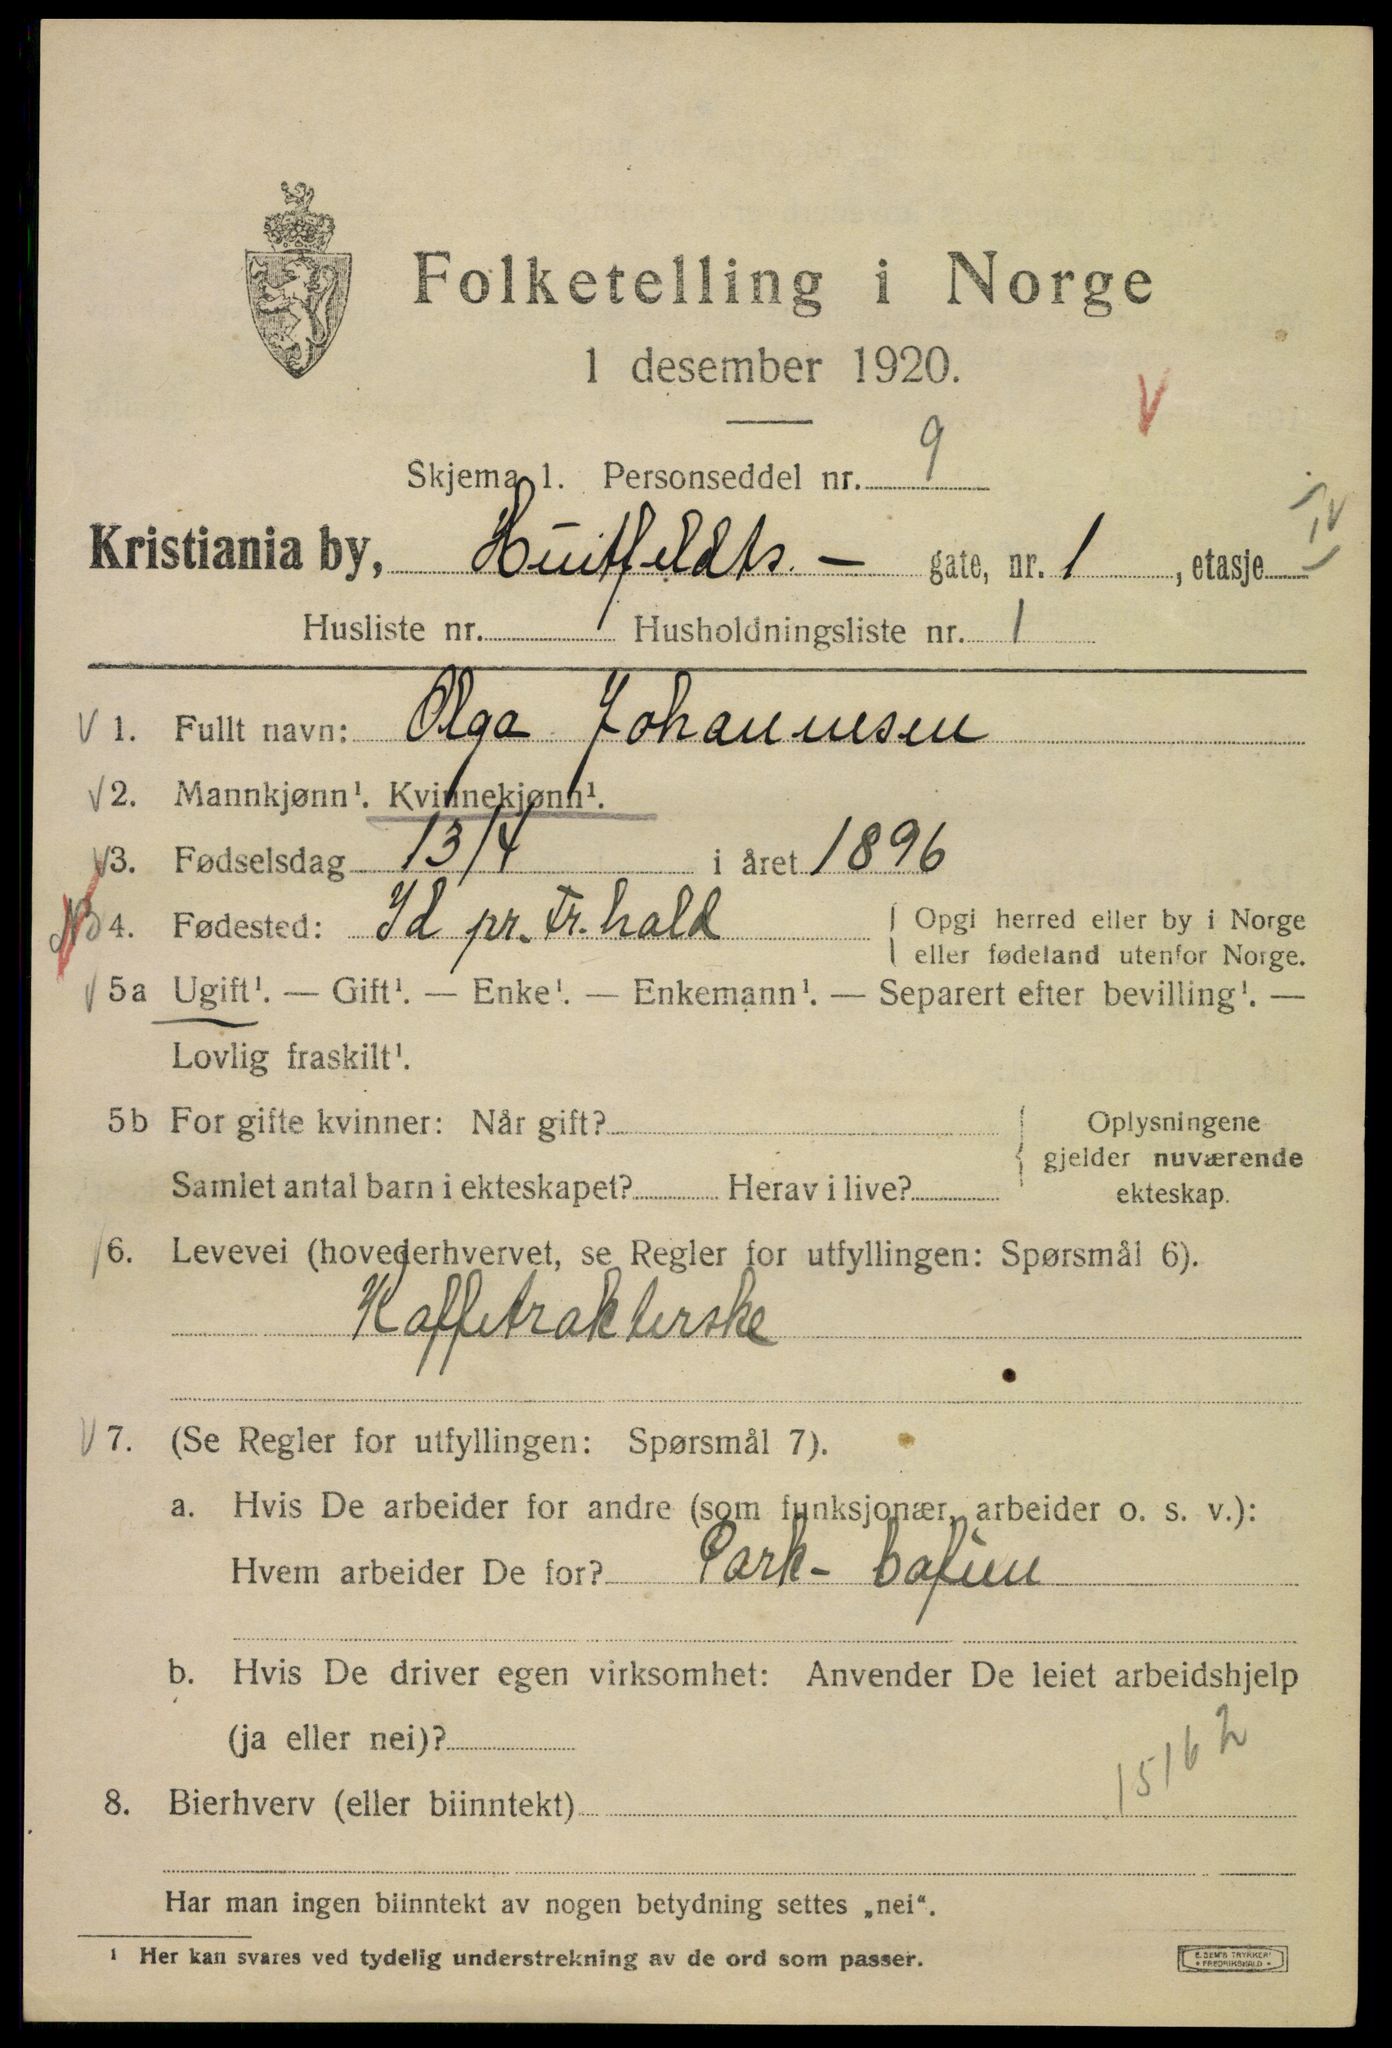 Folketelling i Norge
1 desember 1920.
Skjema 1. Personseddel nr. 9
Kristiania by, Huitfeldts - gate, nr. 1, etasje IV
Husliste nr. Husholdningsliste nr. 1
1. Fullt navn: Olga Johannesen
2. Mannkjønn¹. Kvinnekjønn¹.
3. Fødselsdag 13/4 i året 1896
4. Fødested: Id pr. Fr.hald { Opgi herred eller by i Norge
eller fødeland utenfor Norge.
5a Ugift¹. — Gift¹. — Enke¹. — Enkemann¹. — Separert efter bevilling¹. —
Lovlig fraskilt¹.
5b For gifte kvinner: Når gift? { Oplysningene
gjelder nuværende
Samlet antal barn i ekteskapet? Herav i live? ekteskap.
6. Levevei (hovederhvervet, se Regler for utfyllingen: Spørsmål 6).
Kaffetrakterske
7. (Se Regler for utfyllingen: Spørsmål 7).
a. Hvis De arbeider for andre (som funksjonær, arbeider o. s. v.):
Hvem arbeider De for? Park-
b. Hvis De driver egen virksomhet: Anvender De leiet arbeidshjelp
(ja eller nei)?
15162
8. Bierhverv (eller biinntekt)
Har man ingen biinntekt av nogen betydning settes „nei“.
¹ Her kan svares ved tydelig understrekning av de ord som passer.
E. SEM'S TRYKKERI
FREDRIKSHALD